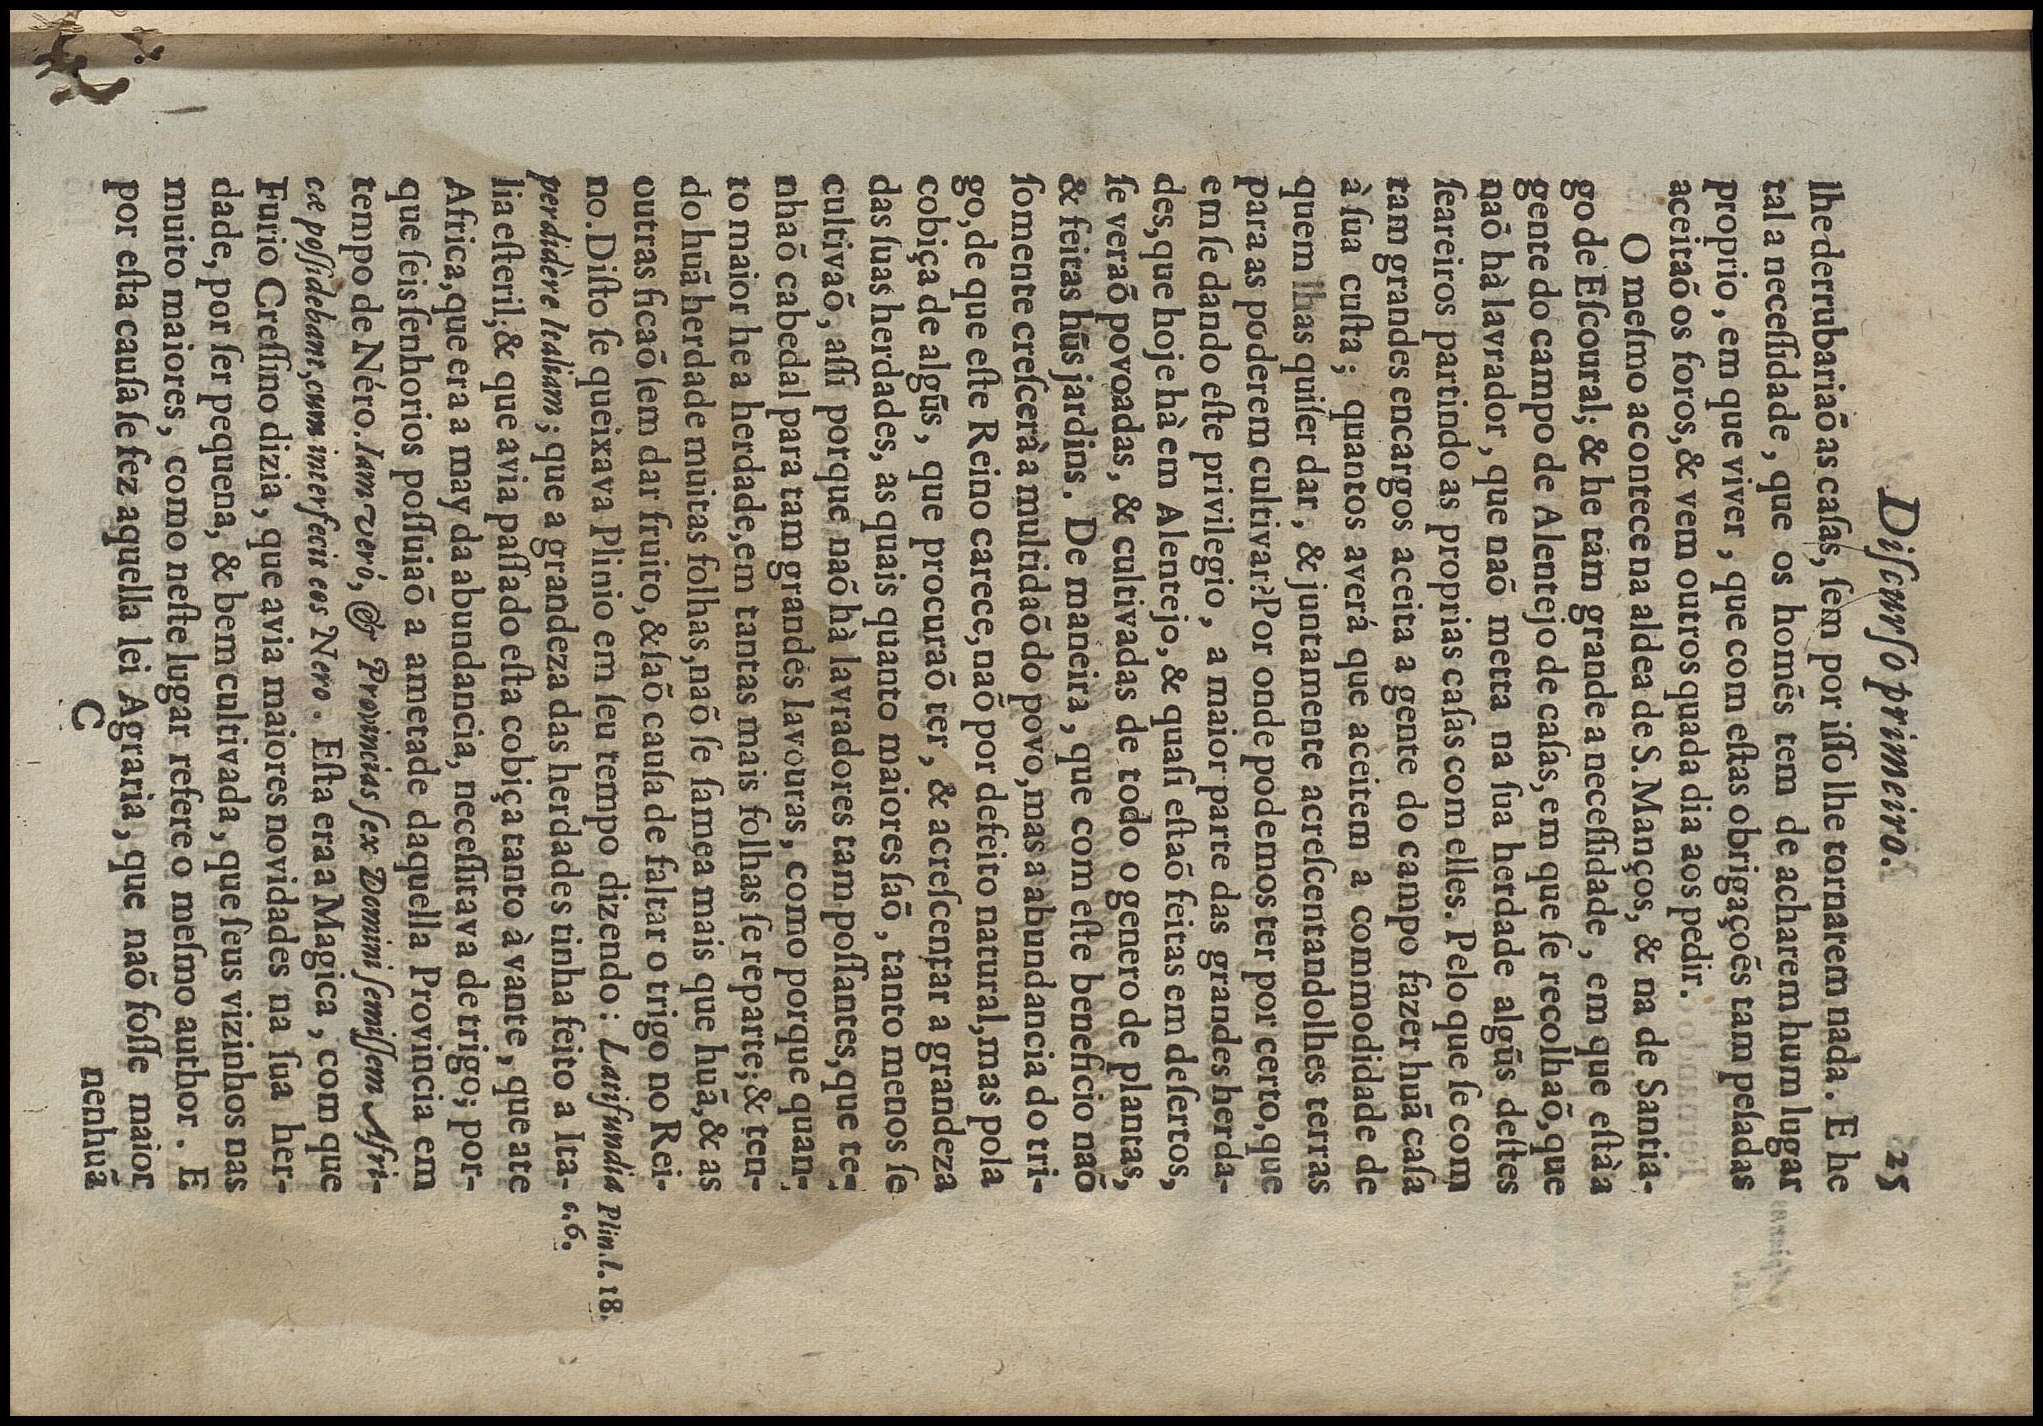 Diſcurſo primeiro. 25
lhe derrubariaõ as caſas, ſem por iſſo lhe tornarem nada. E he
tal a neceſſidade, que os homẽs tem de acharem hum lugar
proprio, em que viver, que com eſtas obrigaçoẽs tam peſadas
aceitaõ os foros, & vem outros quada dia aos pedir.
O meſmo acontece na aldea de S. Manços, & na de Santia-
go de Eſcoural; & he tam grande a neceſſidade, em que eſtà a
gente do campo de Alentejo de caſas, em que ſe recolhaõ, que
naõ hà lavrador, que naõ metta na ſua herdade algũs deſtes
ſeareiros partindo as proprias caſas com elles. Pelo que ſe com
tam grandes encargos aceita a gente do campo fazer huã caſa
à ſua cuſta; quantos averá que aceitem a commodidade de
quem lhas quiſer dar, & juntamente acreſcentandolhes terras
para as poderem cultivar? Por onde podemos ter por certo, que
em ſe dando eſte privilegio, a maior parte das grandes herda-
des, que hoje hà em Alentejo, & quaſi eſtaõ feitas em deſertos,
ſe veraõ povoadas, & cultivadas de todo o genero de plantas,
& feitas hũs jardins. De maneira, que com eſte beneficio naõ
ſomente creſcerà a multidaõ do povo, mas a abundancia do tri-
go, de que eſte Reino carece, naõ por defeito natural, mas pola
cobiça de algũs, que procuraõ ter, & acreſcentar a grandeza
das ſuas herdades, as quais quanto maiores ſaõ, tanto menos ſe
cultivaõ, aſſi porque naõ hà lavradores tam poſſantes, que te-
nhaõ cabedal para tam grandes lavouras, como porque quan-
to maior he a herdade, em tantas mais folhas ſe reparte; & ten-
do huã herdade muitas folhas, naõ ſe ſamea mais que huã, & as
outras ficaõ ſem dar fruito, & ſaõ cauſa de faltar o trigo no Rei-
no. Diſto ſe queixava Plinio em ſeu tempo dizendo: Latifundia Plin. l. 18.
perdidère Italiam; que a grandeza das herdades tinha feito a Ita- c. 6.
lia eſteril; & que avia paſſado eſta cobiça tanto à vante, que ate
Africa, que era a may da abundancia, neceſſitava de trigo; por-
que ſeis ſenhorios poſſuiaõ a ametade daquella Provincia em
tempo de Néro. Iam verò, & Provincias ſex Domini ſemiſſem Afri-
cæ poſſidebant, cum interfecit eos Nero. Eſta era a Magica, com que
Furio Creſſino dizia, que avia maiores novidades na ſua her-
dade, por ſer pequena, & bem cultivada, que ſeus vizinhos nas
muito maiores, como neſte lugar refere o meſmo author. E
por eſta cauſa ſe fez aquella lei Agraria, que naõ foſſe maior
C nenhuã